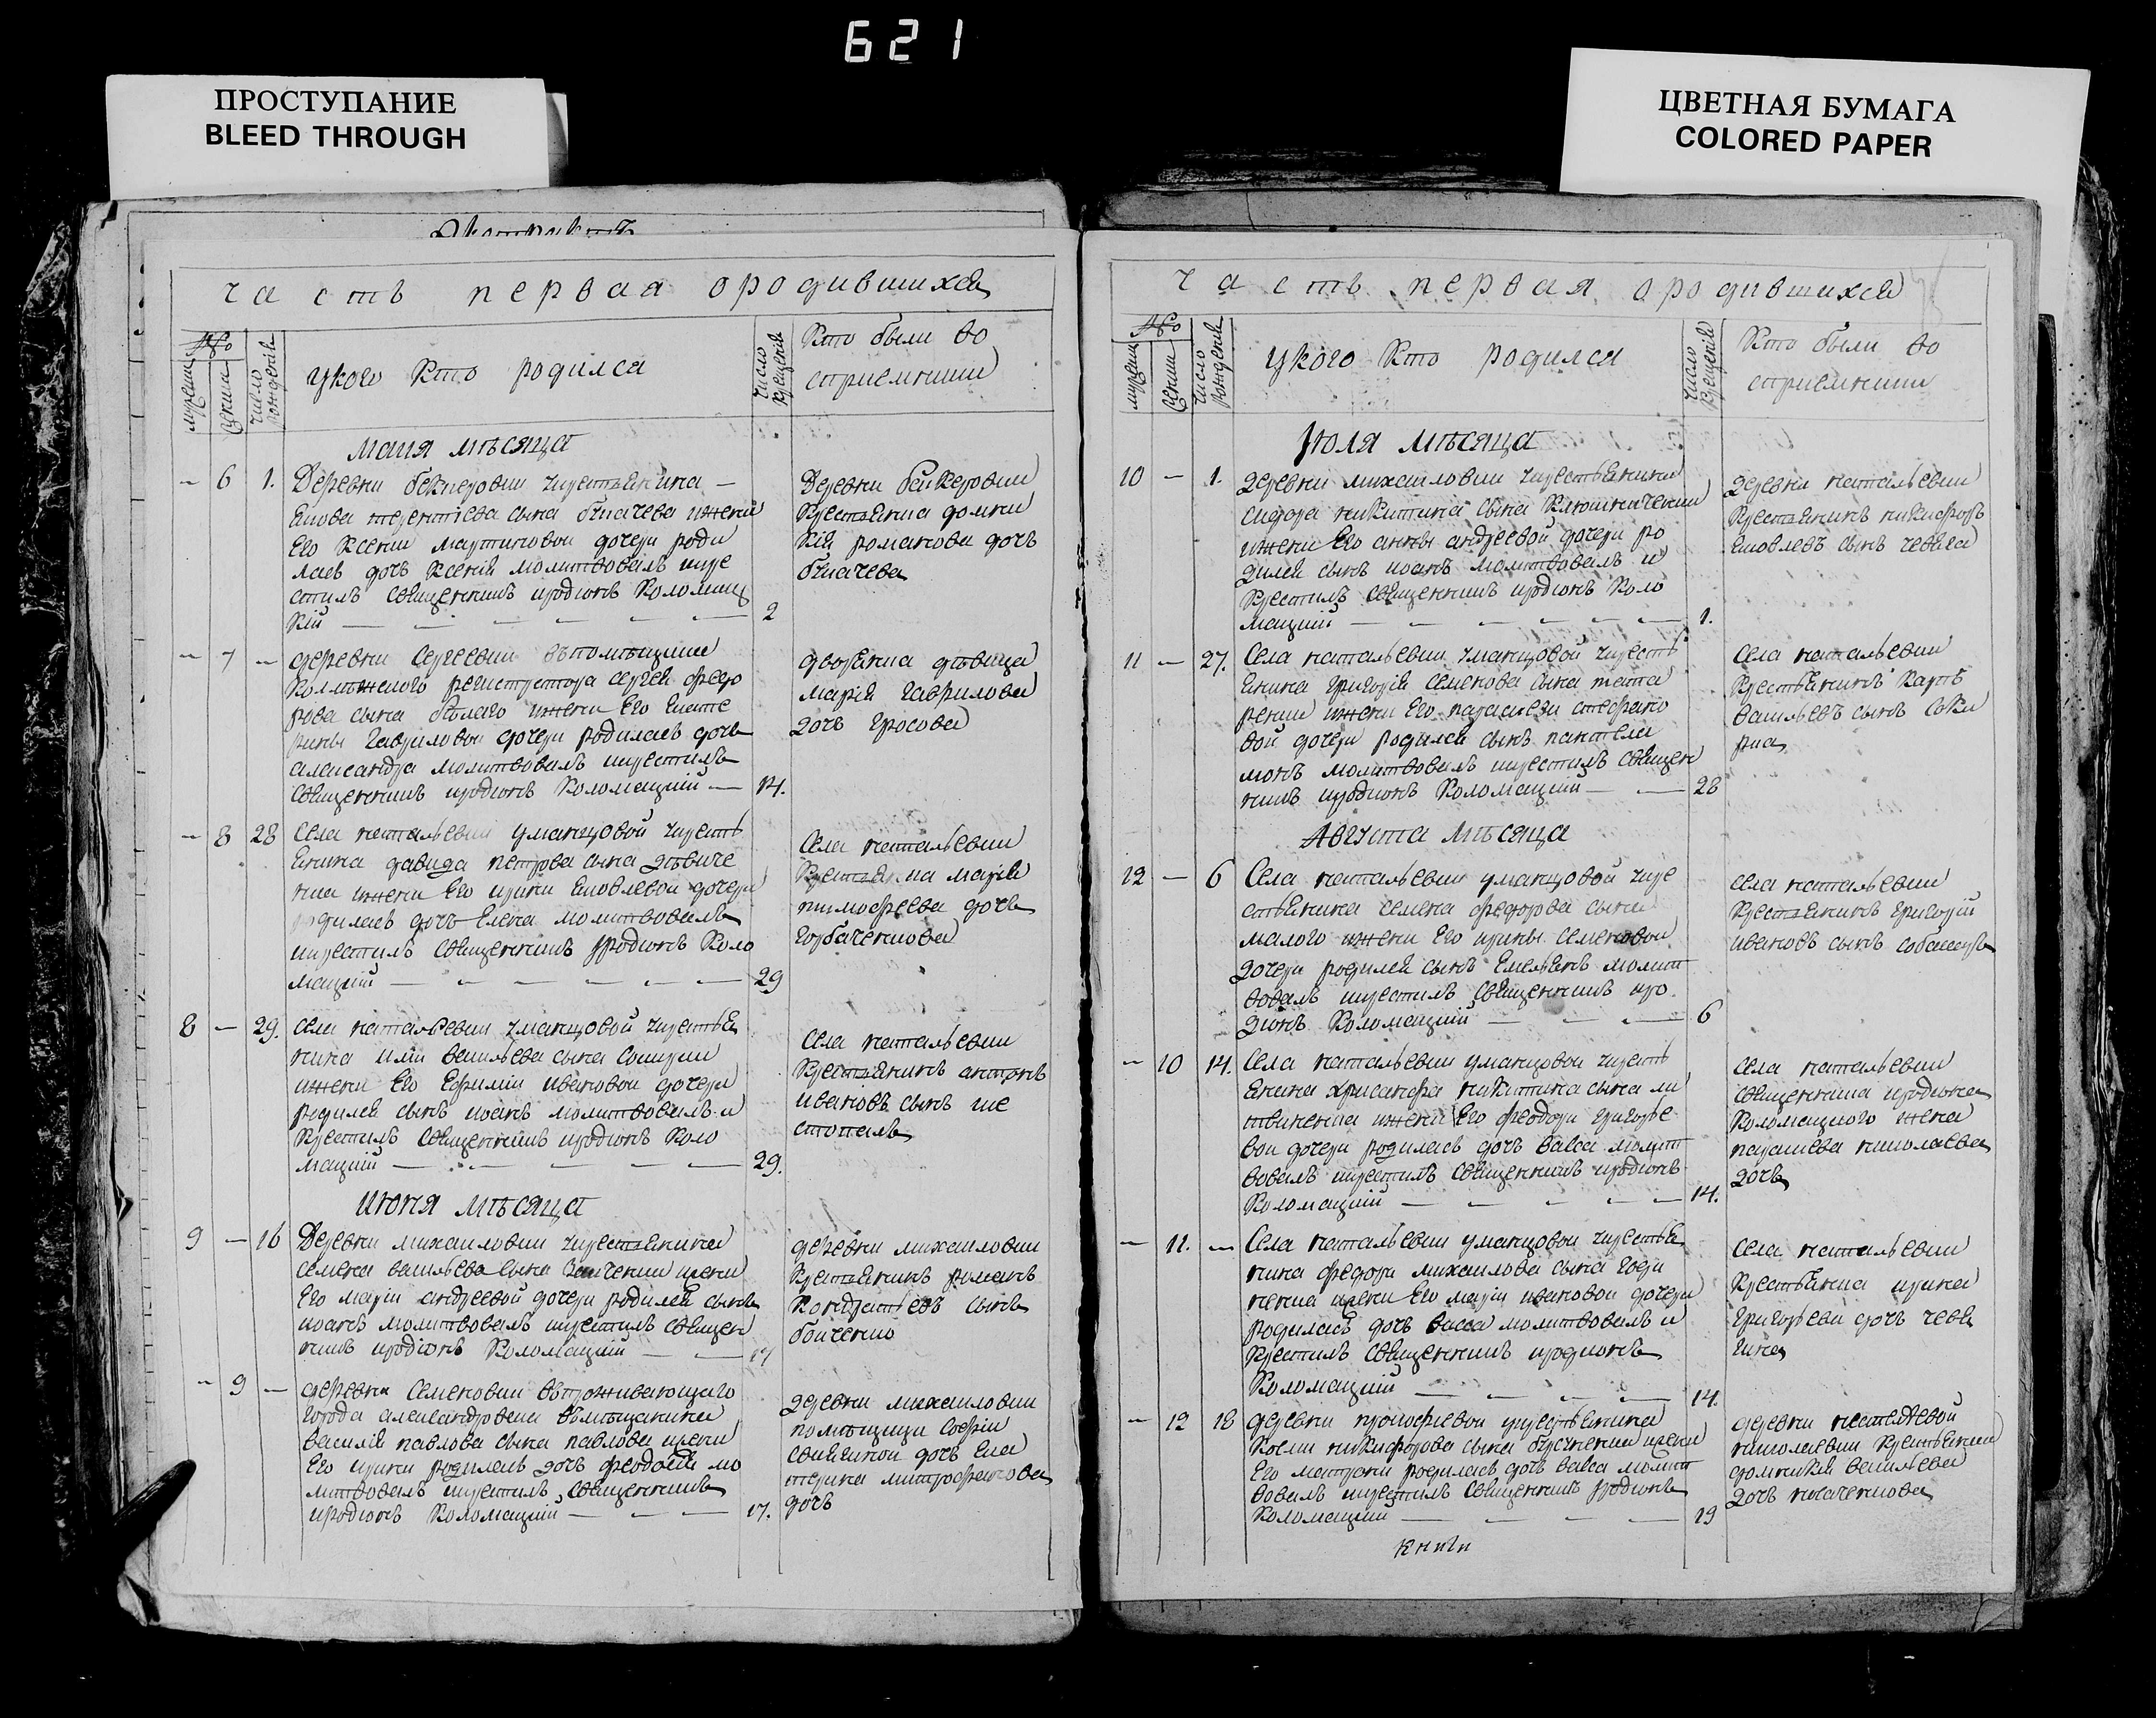 621
ПРОСТУПАНИЕ
BLEED THROUGH
ЦВЕТНАЯ БУМАГА
COLORED PAPER
часть первая о родившихся
№
мужеска
женска
число рожденія
укого кто родился
число крещенія
Кто были во
сприемники
маия мѣсяца
6 1. Деревни
терентіева сына ижени
Его Ксении Мартиновой дочери роди
лась дочь Ксенія молитвовалъ икре
стилъ священникъ иродіонъ Коломац
кій 2
Деревни
Крестьянка домни
кія романова дочь
7 деревни Сергеевки
регистратора сергея федо
рова сына бѣлаго ижени Его Екате
рины Гавриловой дочери родилась дочь
александра молитвовалъ икрестилъ
священникъ иродіонъ Коломацкій 14.
дворянка дѣвица
марія Гаврилова
дочь
8 28 Села натальевки уманцовой крестъ
янина давида петрова сына
ижени Его ирины Яковлевой дочери
родилась дочь Елена молитвовалъ
икрестилъ священникъ иродіонъ Коло
мацкій 29
Села натальевки
Крестьянка марія
тимофеева дочь
горбаченкова
8 29. села натальевки уманцовой крестья
нина иліи васильева сына
ижени Его Ефиміи ивановой дочери
родился сынъ иоанъ молитвовалъ и
Крестилъ священникъ иродіонъ Коло
мацкій 29.
Села натальевки
Крестьянинъ антонъ
ивановъ сынъ ше
стопалъ
июня мѣсяца
9 16 Деревни михайловки крестьянина
семена васильева сына ижени
Его маріи андреевой дочери родился сынъ
иоанъ молитвовалъ икрестилъ священ
никъ иродіонъ Коломацкій 17
деревни михайловки
Крестьянинъ романъ
Кондратьевъ сынъ
бойченко
9 деревни Семеновки впроживающаго
города александровска
василія павлова сына павлова ижени
Его ирины родилась дочь феодосія мо
литвовалъ икрестилъ священникъ
иродіонъ Коломацкій 17.
деревни михайловки
помѣщицы софіи
дочь Ека
терина митрофанова
дочь
часть первая о родившихся
№
мужеска
женска
число рожденія
укого кто родился
число крещенія
Кто были во
сприемники
Июля мѣсяца
10 1. деревни михайловки крестьянина
сидора никитина сына
ижени Его анны андреевой дочери ро
дился сынъ иоанъ молитвовалъ и
Крестилъ священникъ иродіонъ Коло
мацкій 1.
деревни натальевки
Крестьянинъ никифоръ
яковлевъ сынъ
11 27. Села натальевки уманцовой крестъ
янина григорія семенова сына тата
ренки ижени Его параскеви стефано
вой дочери родился сынъ пантелеи
монъ молитвовалъ икрестилъ священ
никъ иродіонъ Коломацкій 28
Села натальевки
Крестьянинъ Карпъ
васильевъ сынъ
Августа мѣсяца
12 6 Села натальевки уманцовой кре
стьянина семена федорова сына
малого ижени Его ирины семеновой
дочери родился сынъ Емельянъ молит
вовалъ икрестилъ священникъ иро
діонъ Коломацкій 6
села натальевки
Крестьянинъ григорій
ивановъ сынъ
10 14. Села натальевки уманцовой крестъ
янина хрисанфа никитина сына ли
твиненка ижени Его феодоры григорье
вой дочери родилась дочь васса молит
вовалъ икрестилъ священникъ иродіонъ
Коломацкій 14.
Села натальевки
священника иродіона
Коломацкого жена
параскева николаева
дочь
11. Села натальевки уманцовой крестья
нина федора михайлова сына
ижени Его маріи ивановой дочери
родилась дочь васса молитвовалъ и
Крестилъ священникъ иродіонъ
Коломацкій 14.
Села натальевки
Крестьянка ирина
григорьева дочь
12 18 деревни крестьянина
никифорова сына ижени
Его матроны родилась дочь васса молит
вовалъ икрестилъ священникъ иродіонъ
Коломацкій 19
деревни
николаевки Крестьянка
домникія васильева
дочь
книги